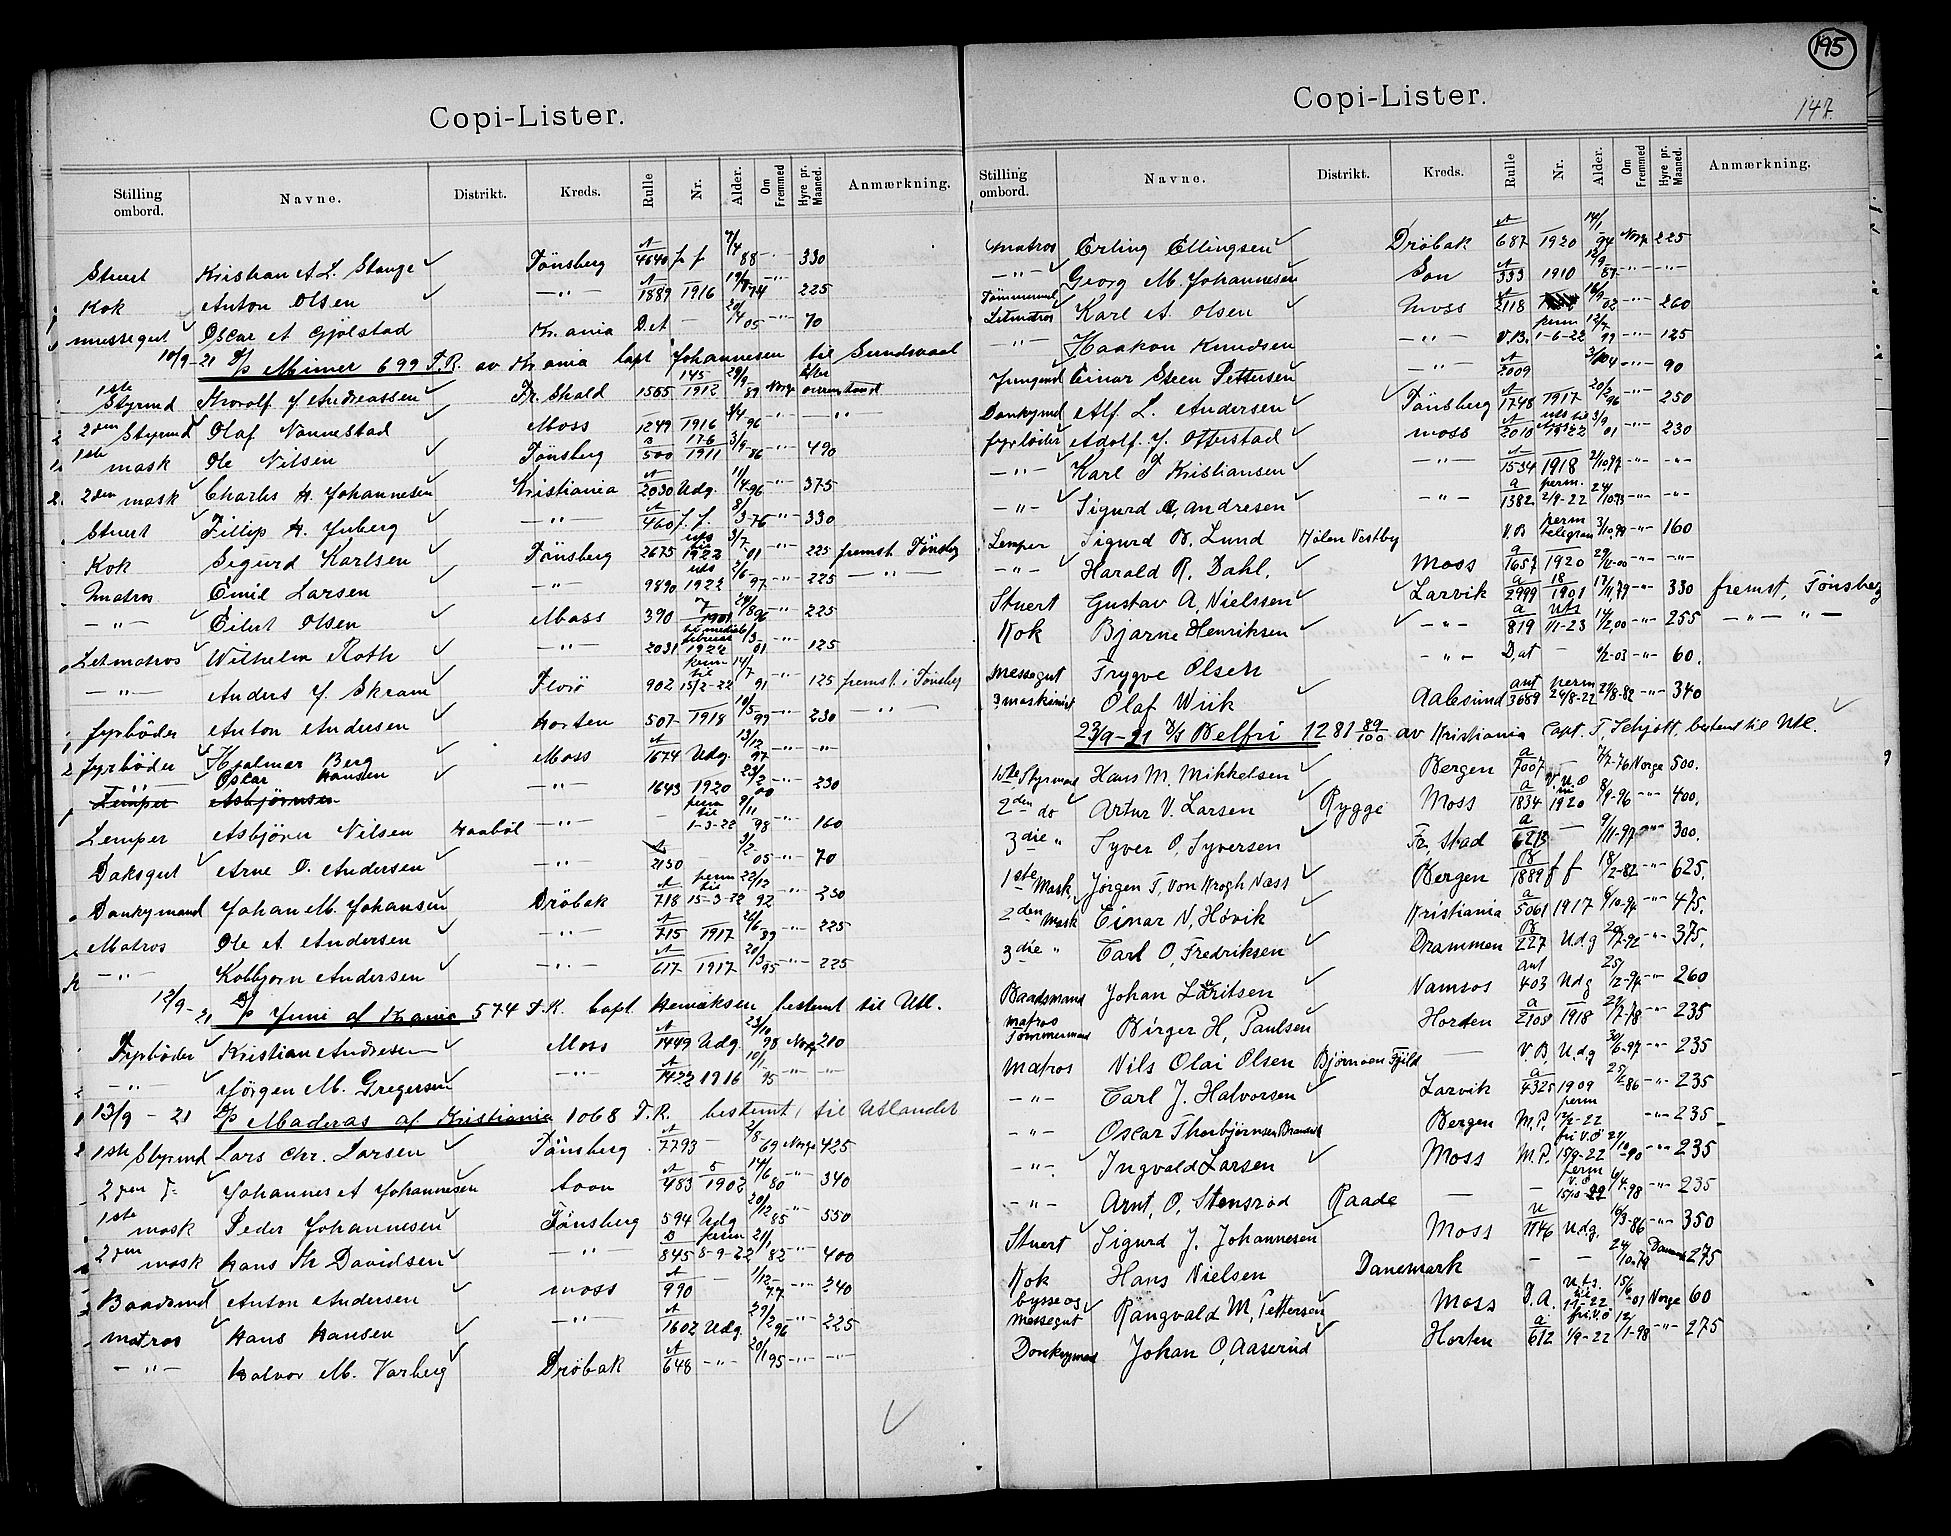 195
147.
Copi-Lister.
Stilling ombord. Navne. Distrikt. Kreds. Rulle Nr. Alder. Om Fremmed Hyre pr. Maaned. Anmærkning.
Stuert Kristian A L. Stange Tönsberg A/4640 f f 7/4 88 -"- 330
Kok Anton Olsen -"- A/1889 1916 -"- 225
messegut Oscar A Gjölstad Kr.ania D.A - 05 -"- 70
10/9-21 D/S Mimer 699 T.R. av Kr ania Capt Johannesen til Sundsvaal
1ste Styrmd Thorolf J Andreassen Fr. Shald 1565 145/1912 29/9 89 Norge
2den Styrmd Olaf Nannestad Moss 1249 1916 96 -"- "
1ste mask Ole Nilsen Tönsberg a/500 176/1911 3/9 86 -"- 490
2den mask Charles H. Johannesen Kristiania A/2030 Udg. 11/4 96 -"- 375
Stuert Fillip H. Juberg -"- A/460 f. f. 8/3 76 -"- 330
Kok Sigurd Karlsen Tönsberg 2675 uds til 1922 3/7 01 -"- 225 fremst. Tönsbg
Matros Emil Larsen -"- 9890 uds 1922 2/6 97 -"- 225 -"-
-"- Eilert Olsen Moss 390 7/1901 96 -"- 225
Letmatros Wilhelm Roth -"- 2031 1922 01 -"- 125
-"- Anders J. Skram Florö 902 perm til 15/2-22 14/7 91 125 fremst. i Tönsbg
fyrböder Anton Andersen Horten 507 1918 10/5 99 -"- 230 -"-
fyrböder Hjalmar Berg Moss A/1674 Udg. 13/12 97 -"- "
Lemper Oscar Hansen Asbjörnsen -"- 1643 1920 23/2 00 -"- 230
Lemper Asbjörn Nilsen Haaböl -"- - perm til 1-3-22 9/11 98 -"- 160
Daksgut Arne O. Andersen -"- A/2130 3/2 05 -"- 70
Donkymand Johan M. Johansen Dröbak A/718 perm til 15-3-22 22/12 92 -"- 250
Matros Ole A Andersen -"- A/715 1917 26/6 89 -"- 225
-"- Kolbjorn Andersen -"- A/617 1917 20/3 95 -"- 225
12/9-21 D/S Juni af Kr.ania 574 T.R. Capt. Henriksen bestemt til Utl.
Fyrböder Kristian Andresen Moss A/1449 Udg. 23/10 98 Norge 210
-"- Jörgen M. Gregersen -"- A/1422 1916 10/1 95 -"- -"-
13/9-21 D/S Maderas af Kristiania 1068 T.R. bestemt til Utlandet
1ste Styrmd Lars Chr. Larsen Tönsberg A/7793 - 2/8 69 Norge 425
2den d- Johannes A Johannesen A/483 5/1902 14/6 80 -"- 340
1ste mask Peder Johannesen Tönsberg 594 Udg 20/12 85 -"- 550
2den mask Hans Th Davidsen -"- B/845 perm 8-9-22 21/1 82 -"- 400
Baadsmd Anton Andersen moss A/990 - 1/12 77 -"- 240
matros Hans Hansen -"- A/1602 Udg. 27/2 96 -"- 225
-"- Halvor M. Varberg Dröbak A/648 -"- 20/1 95 -"- -"-
Copi-Lister.
Stilling ombord. Navne. Distrikt. Kreds. Rulle Nr. Alder. Om Fremmed Hyre pr. Maaned. Anmærkning.
matros Erling Ellingsen Dröbak A/687 1920 14/1 94 Norge 225
-"- Georg M. Johannesen Son A/333 1910 12/9 87 -"- -"-
Tömmermd Letmatros Karl A. Olsen Moss A/2118 02 -"- 260
-"- Haakon Knudsen -"- V.B. perm 1-6-22 12/7 99 -"- 125
Jungmd Einar Steen Pettersen -"- A/2009 04 -"- 90
Donkymd Alf. L. Andersen Tönsberg A/1748 1917 20/2 96 -"- 250
fyrböder Adolf. J. Ottestad moss A/2010 uds til 1922 3/9 01 -"- 230
-"- Karl T Kristiansen -"- A/1534 1918 2/10 97 -"- -"-
-"- Sigurd A. Andresen -"- a/1382 perm. 2/9-22 24/10 73 -"- -"-
Lemper Sigurd B. Lund Hölen Vestby V.B perm telegram 3/10 99 -"- 160
-"- Harald R. Dahl. Moss a/1657 1920 -"- -"-
Stuert Gustav A. Nielssen Larvik a/2999 18/1901 17/11 79 -"- 330 fremst. Tönsberg
Kok Bjarne Henriksen -"- a/819 uts 1/1-23 14/2 00 -"- 255 -"- "-
messegut Trygve Olsen -"- D.at - 9/2-03 -"- 60.
3 maskinist Olaf Wiik Aalesund ant/3689 perm 24/8-22 29/8-82 -"- 340
23/9-21 D/S Belfri 1281 89/100 av Kristiania Capt. T. Schjött, bestemt til Utl.
1ste Styrmand Hans M. Mikkelsen Bergen a/7007 - 7/7-76 Norge 500.
2den do Artur V. Larsen Rygge Moss a/1834 1920 8/9-96 -"- 400.
3die " Syver O. Syversen Fr. Stad a/6213 - 9/11-97 -"- 300.
1ste Mask, Jörgen T. von Krogh Nass Bergen B/1889 f f 18/2-82 -"- 625.
2den Mask Einar N. Hövik Kristiania a/5061 1917 6/10-94 -"- 475.
3die " Carl O. Fredriksen Drammen B/227 Udg 92 -"- 375.
Baadsmand Johan Lauritsen Namsos ant/403 Udg 25/12-94 -"- 260
matros Tömmermand Birger H. Paulsen Horten a/2108 1918 27/7-78 -"- 235
matros Nils Olai Olsen Björnoen Fjeld V.B. Udg. 30/6-97 -"- 235
-"- Carl J. Halvorsen Larvik a/4325 1909 86 -"- 235
-"- Oscar Thorbjörnsen Bramslit Bergen M.P. perm 12/2-22 -"- 235
-"- Ingvald Larsen Moss M.P. fri V.O 15/9-22 90 -"- 235
-"- Arnt. O. Stensröd Raade - - perm V.O 15/10-22 6/4-98 -"- 235
Stuert Sigurd J. Johannesen Moss 1146 Udg. 16/3-86 -"- 350
Kok Hans Nielsen Danemark - - 24/10-79 Danmark 275
bysse og messegut Rangvald M. Pettersen Moss D.A. uts. til 1/1-22 15/6-01 Norge 60
Donkymd Johan O. Aaserud Horten a/612 fri V.O 1/9-22 12/1-98 -"- 275